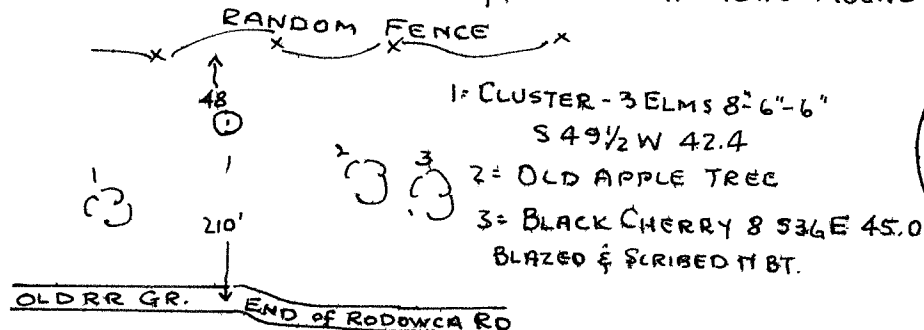 RANDOM FENCE
48
1= CLUSTER - 3 ELMS 8"-6"-6"
S 49½ W 42.4
1
2
3
2= OLD APPLE TREE
210'
3= BLACK CHERRY 8 S36E 45.0
BLAZED & SCRIBED
BT.
OLD RR GR.
END of RODOWCA RD